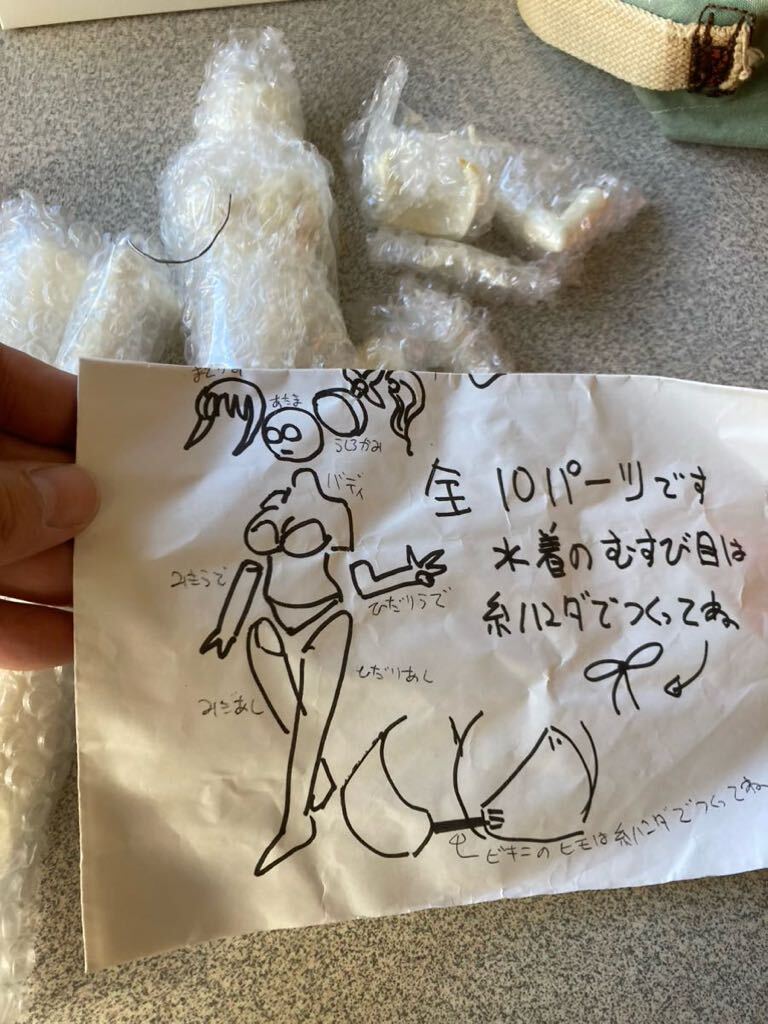 あたま
うしろがみ
バディ
全10パーツです
水着のむすび目は
糸ハンダでつくってね
みぎうで
ひだりうで
みぎあし
ひだりあし
ビキニのヒモは糸ハンダでつくってね